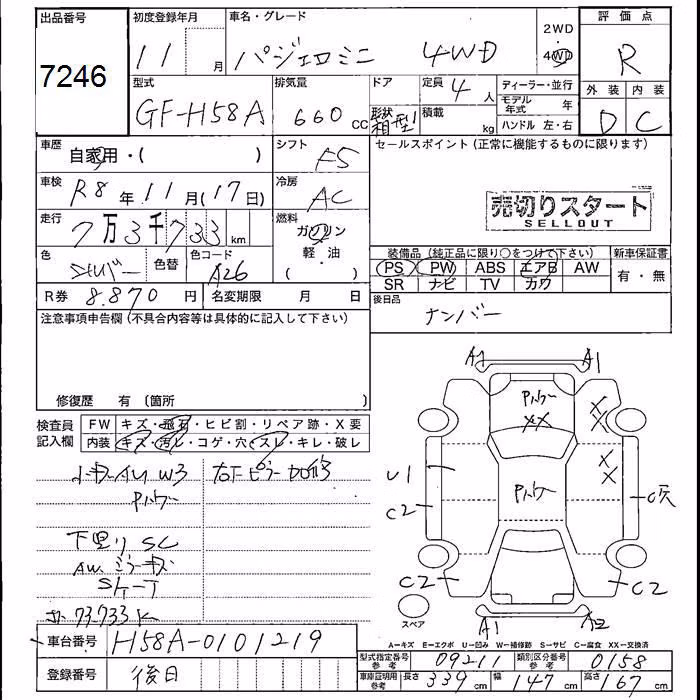 出品番号 初度登録年月 車名・グレード 2WD 評価点
7246 11 月 パジェロミニ 4WD 4WD R
型式 排気量 ドア 定員 ディーラー・並行 外装 内装
GF-H58A 660 cc 形状 箱型 4人 積載 kg モデル年式 年 ハンドル 左・右 D C
車歴 自家用・( ) シフト F5 セールスポイント (正常に機能するものに限ります)
車検 R8年11月(17日) 冷房 AC
売切りスタート
SELLOUT
走行 7万3千733km 燃料 ガソリン
軽・油
( )
色 シルバー 色替 色コード A26
装備品 (純正品に限り○をつけて下さい) 新車保証書
PS PW ABS エアB AW 有・無
SR ナビ TV カワ
R券 8.870円 名変期限 月 日
後日品
ナンバー
注意事項申告欄 (不具合内容等は具体的に記入して下さい)
修復歴 有 (箇所
検査員 FW キズ・飛石・ヒビ割・リペア跡・X要
記入欄 内装 キズ・汚レ・コゲ・穴・スレ・キレ・破レ
W3
下廻り SC
73.733K
A1 A1
XX
XX
XX
U1
C2
C穴
C2 C2
スペア
A1 A2
A=キズ E=エクボ U=凹み W=補修跡 S=サビ C=腐食 XX=交換済
車台番号 H58A-0101219
型式指定番号 参考 09211 類別区分番号 参考 0158
登録番号 後日
車庫証明用 参考 長さ 339cm 幅 147cm 高さ 167cm